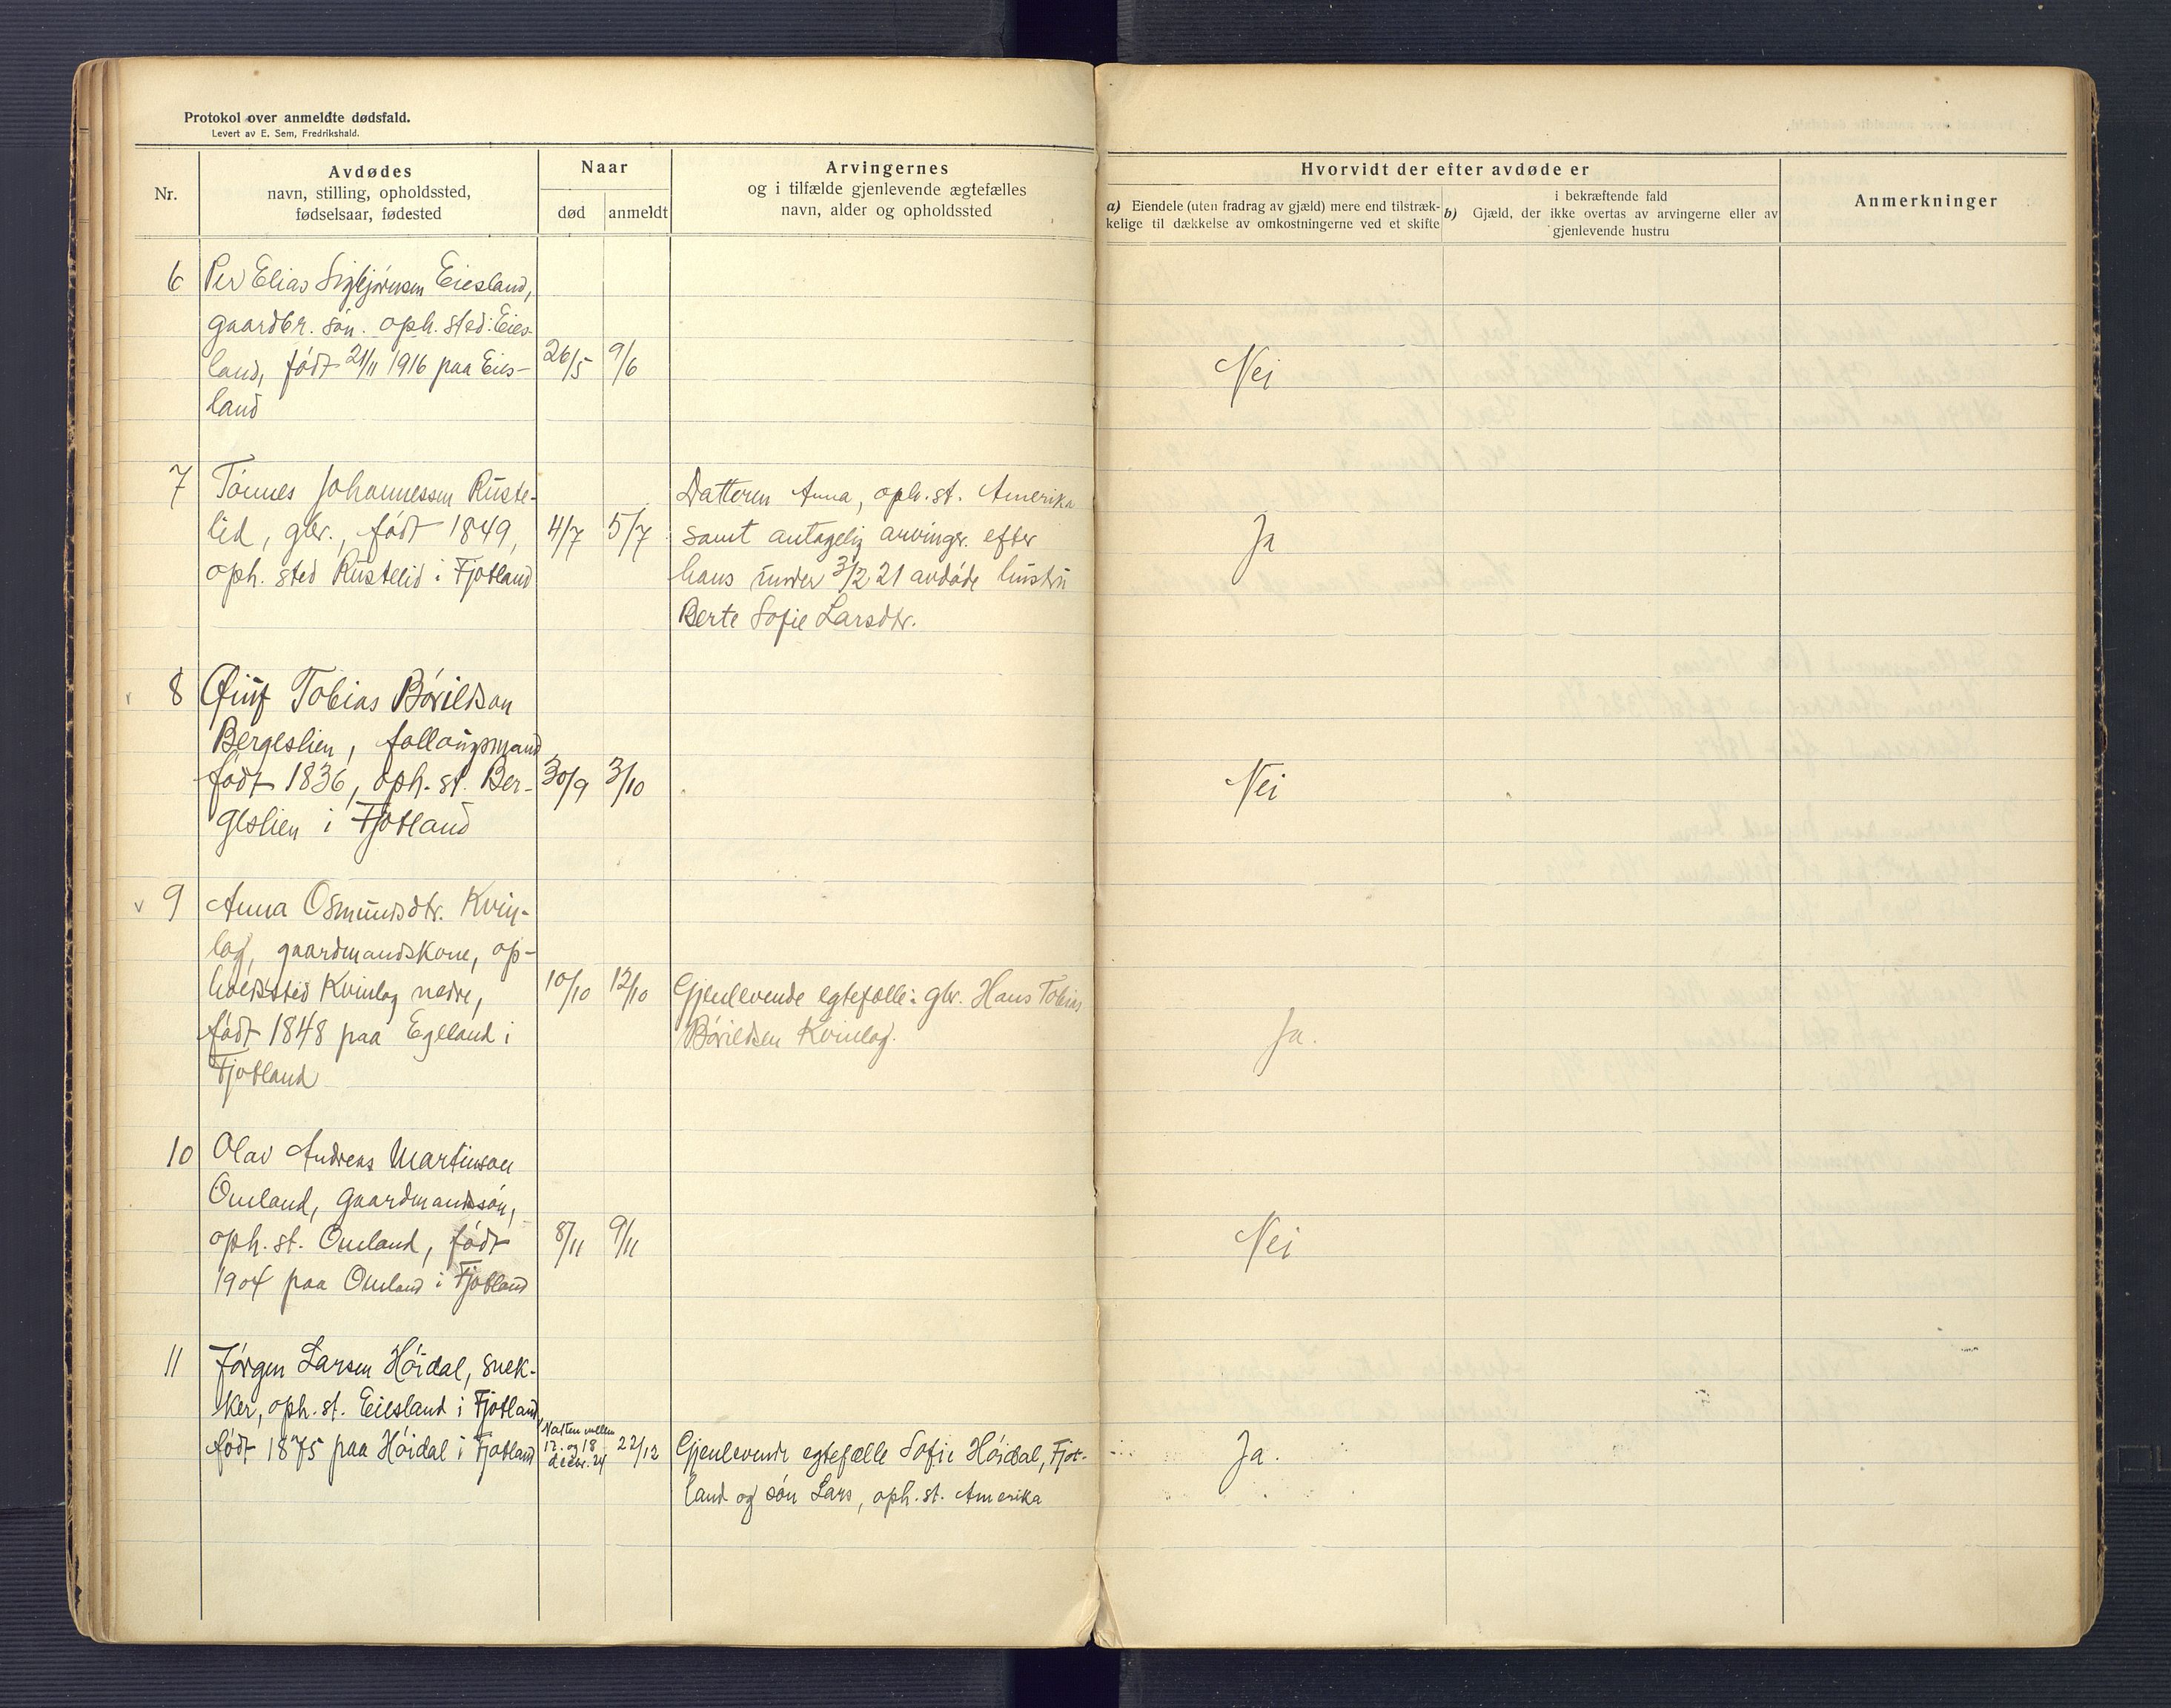 Protokol over anmeldte dødsfald.
Levert av E. Sem, Fredrikshald.
Nr.
Avdødes
navn, stilling, opholdssted,
fødselsaar, fødested
Naar
død
anmeldt
Arvingernes
og i tilfælde gjenlevende ægtefælles
navn, alder og opholdssted
Hvorvidt der efter avdøde er
a) Eiendele (uten fradrag av gjæld) mere end tilstræk-
kelige til dækkelse av omkostningerne ved et skifte
i bekræftende fald
b) Gjæld, der ikke overtas av arvingerne eller av
gjenlevende hustru
Anmerkninger
6 Per Elias Sigbjørnsen Eiesland,
gaardbr. søn. oph. sted: Eies-
land, født 21/11 1916 paa Eies- 26/5 9/6 Nei
land
7 Tønnes Johannessen Ruste- Datteren Anna, oph. st. Amerika
lid, gbr., født 1849, 4/7 5/7 samt antagelig arvinger efter Ja
oph. sted Rustelid i Fjotland hans under 3/2 21 avdøde hustru
Berte Sofie Larsdtr.
8 Tobias Bårildson
Bergeslien, follaugsmand
født 1836, oph. st. Ber- 30/9 3/10 Nei
geslien i Fjotland
v 9 Anna Osmundsdtr. Kvin-
log, gaardmandskone, op-
holdssted Kvinlog nedre, 10/10 12/10 Gjenlevende egtefælle: gbr. Hans Tobias
født 1848 paa Egeland i Bårildsen Kvinlog. Ja.
Fjotland
10 Olav Andreas Martinson
Omland, gaardmandssøn,
oph. st. Omland, født 8/11 9/11 Nei
1904 paa Omland i Fjotland
11 Jørgen Larsen Høidal, snek-
ker, oph. st. Eiesland i Fjotland,
født 1875 paa Høidal i Fjotland Natten mellem 17. og 18 decbr. 24 22/12 Gjenlevende egtefælle Sofie Høidal, Fjot- Ja.
land og søn Lars, oph. st. Amerika